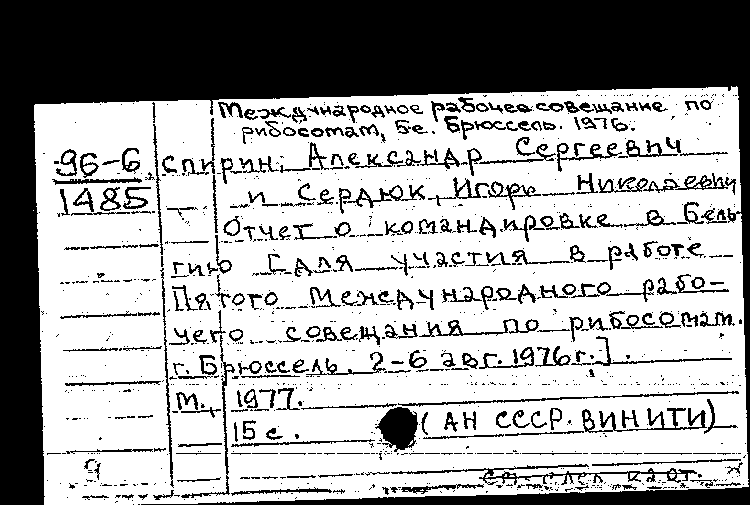 Международное рабочее совещание по
рибосомам, 5е. Брюссель. 1976.
96-6
1485
Спирин, Александр Сергеевич
и Сердюк, Игорь Николаевич
Отчет о командировке в Бель-
гию [для участия в работе
Пятого Международного рабо-
чего совещания по рибосомам.
г. Брюссель. 2-6 авг. 1976г.].
М., 1977.
15 с. (АН СССР. ВИНИТИ)
9